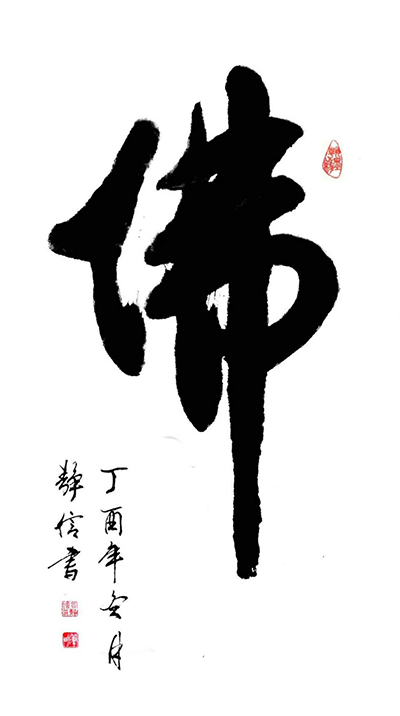 佛
丁酉年月
静信書